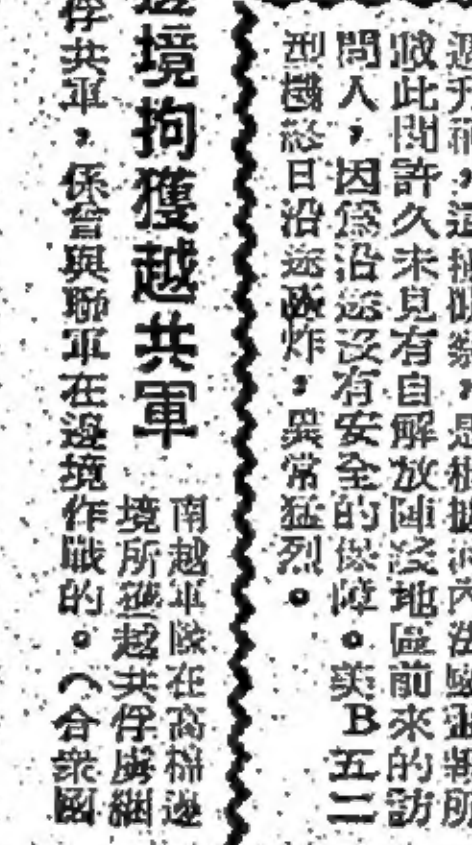 此間許久未見有自解放陣沒地區前來的訪
問人，因爲沿途沒有安全的保障。美B五二
型機終日沿途轟炸，異常猛烈。
邊境拘獲越共軍
南越軍隊在高棉邊
境所獲越共俘虜綑
俘共軍，係曾與聯軍在邊境作戰的。（合衆國